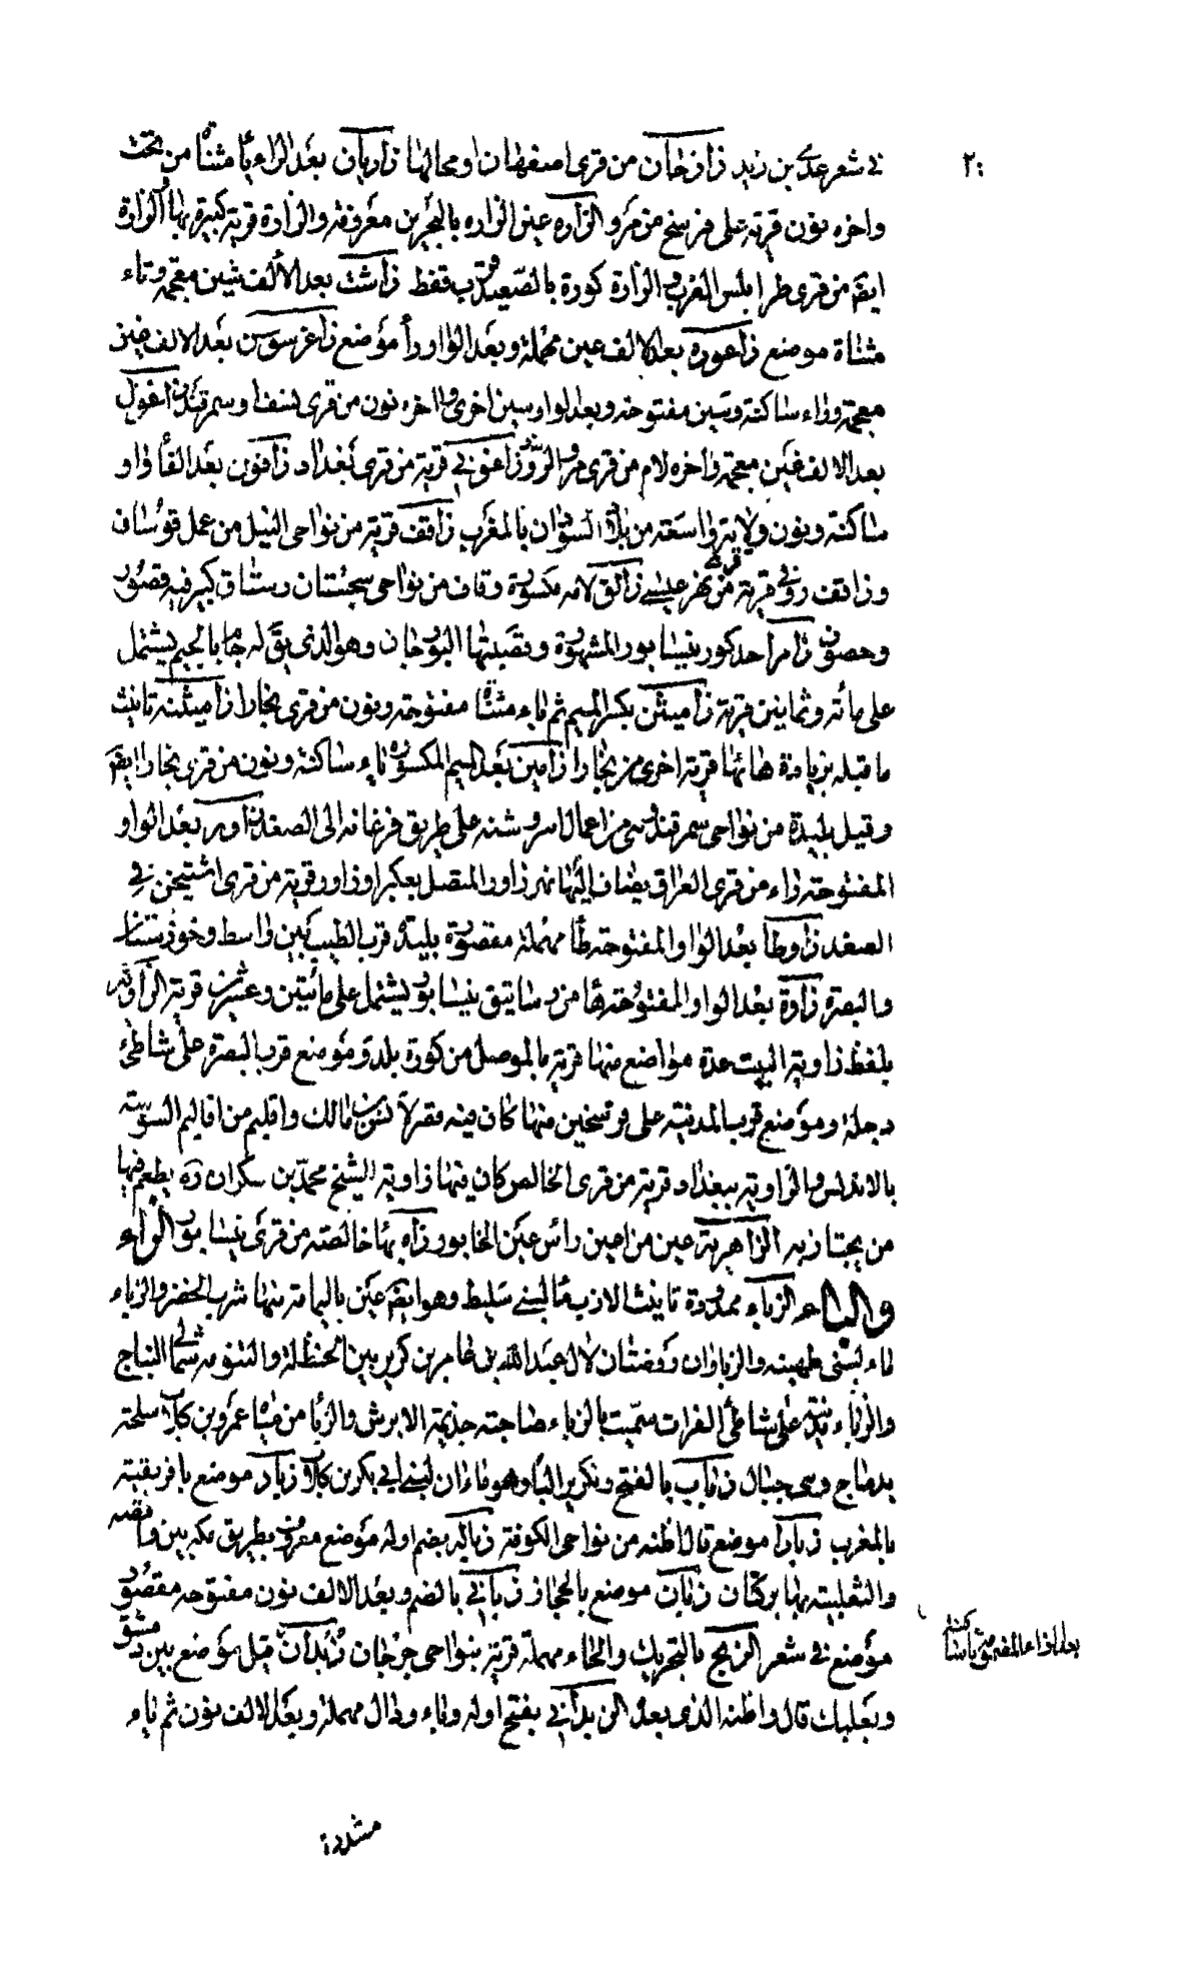 ٢٠
في شعر عدي بن زيد زاذخان من قرى اصفهان او محالها زاريان بعد الراء يا مثناة من تحت
واخره نون قرية على فرسخ من مرو الزارة عين الزاره بالبحرين معروفة والزارة قرية كبيرة بها الزارة
ايضم من قرى طرابلس الغرب والزارة كورة بالصعيد قرب قفط زاشت بعد الألف شين معجمة وتاء
مثناة موضع زاعورة بعد الالف عين مهملة وبعد الواو رأ موضع زاغرسوسن بعد الالف غين
معجمة وراء ساكنة وسين مفتوحة وبعد الواو سين اخرى واخره نون من قرى نسف او سمرقند زاغول
بعد الالف غين معجمة واخره لام من قرى مرو الروذ زاغوني قرية من قرى بغداد زافون بعد الفا واو
ساكنة ونون ولاية واسعة من بلاد السودان بالمغرب زاقف قرية من نواحى النيل من عمل قوسان
وزاقف قرية من نهر عيسى زالق لامه مكسورة وقاف من نواحى سجستان رستاق كبير فيه قصور
وحصون زام احد كور نيسابور المشهورة وقصبتها البوزجان وهو الذى يقم له جام بالجيم يشتمل
على مائة وثمانين قرية زاميثن بكسر الميم ثم ياء مثناة مفتوحة ونون من قرى بخارا زاميثنة تانيث
ما قبله بزيادة هائها قرية اخرى من بخارا زامين بعد الميم المكسورة ياء ساكنة ونون من قرى بخارا ايضم
وقيل بليدة من نواحى سمرقند وهى من اعمال اسروشنه على طريق فرغانه الى الصغد زاور بعد الواو
المفتوحة راء من قرى العراق يضاف اليها نهر زاور المتصل بعكبرا وزاور قرية من قرى اشتيخن في
الصغد زاوطا بعد الواو المفتوحة طا مهملة مقصورة بليدة قرب الطيب بين واسط وخوزستان
والبصرة زاوة بعد الواو المفتوحة ها من رساتيق نيسابور يشتمل على مائتين وعشرين قرية الزاوية
بلفظ زاوية البيت عدة مواضع منها قرية بالموصل من كورة بلد وموضع قرب البصرة على شاطئ
دجلة وموضع قرب المدينة على فرسخين منها كان فيه قصر لانس بن مالك واقليم من اقاليم السوسة
بالاندلس والزاوية ببغداد قرية من قرى الخالص كان فيها زاوية الشيخ محمد بن سكران ره يطعم فيها
من يجتاز به الزاهرية عين من اعين رأس عين الخابور زاه بها خالصة من قرى نيسابور الزاء
والباء الزباء ممدودة تانيث الازب ما لبنى سليط وهو ايضم عين باليمامة منها شرب الخضر والزباء
ماء لبنى طهية والزباوان روضتان لال عبد الله بن عامر بن كريز بين الحنظلة والتنومة شمالي النباج
والزباء مدينة على شاطئ الفرات سميت بالزباء صاحبة جذيمة الابرش والزبا من مياه عمرو بن كلاب سلحة
بدماج وهى جبال زباب بالفتح وتكرير البا وهو ماءان لبنى ابي بكر بن كلاب زباد موضع بافريقية
بالمغرب زبارا موضع قال اظنه من نواحى الكوفة زبالة بضم اوله موضع معروف بطريق مكة بين واقصه
والثعلبية بها بركتان زبان موضع بالحجاز زباني بالضم وبعد الالف نون مفتوحه مقصور
موضع فى شعر الزبح بالتحريك والحاء مهملة قرية بنواحى جرجان زبدان قيل موضع بين دمشق
وبعلبك قال واظنه الذى بعده الزبداني بفتح اوله وثاء ودال مهملة وبعد الالف نون ثم ياء
بعد الزاء المضمومة باء ساكنة
مشددة